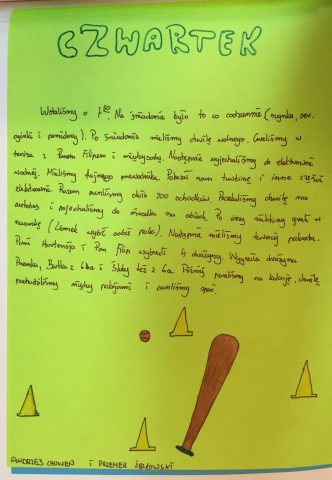 CZWARTEK
Wstaliśmy o 7:00. Na śniadanie było to co codziennie (szynka, ser,
ogórki i pomidory). Po śniadaniu mieliśmy chwilę wolnego. Graliśmy w
tenisa z Panem Filipem i niektórzy. Następnie wyjechaliśmy do elektrowni
wodnej. Mieliśmy fajnego przewodnika. Pokazał nam turbinę i inne części
elektrowni. Razem mieliśmy około 200 schodków. Poczekaliśmy chwilę na
autobus i pojechaliśmy do ośrodka na obiad. Po czym mieliśmy grać w
(Ziemek wybił sobie palec). Następnie mieliśmy turniej palanta.
Pani Hortensja i Pan Filip wybrali 4 drużyny. Wygrała drużyna
Przemka, Bartka z 6ba i też z 6a. Później poszliśmy na kolację, chwilę
pochodziliśmy między pokojami i poszliśmy spać.
ANDRZEJ I PRZEMEK